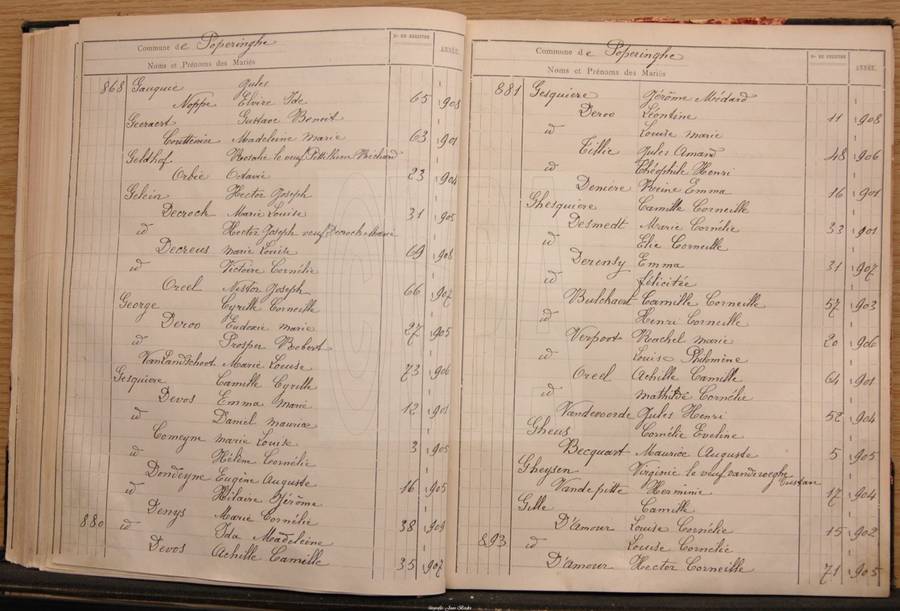 Commune de Poperinghe
Nos DU REGISTRE
ANNÉE.
Noms et Prénoms des Mariés
868 Gauquie Jules
Noppe Elvire Ide 65 1908
Geeraert Gustave Benoit
Couttenier Madeleine Marie 63 1901
Geldhof Rosalie le veuf
Orbie Octavie 23 1904
Gelein Hector Joseph
Decroch Marie Louise 31 1905
id Hector Joseph veuf Decroch Marie
Decreus Marie Louise 69 1908
id Victoire Cornélie
Oreel Nestor Joseph 66 1907
George Cyrille Corneille
Deroo Eudoxie Marie 27 1905
id Prosper Robert
Vanlandschoot Marie Louise 73 1906
Gesquiere Camille Cyrille
Devos Emma Marie 12 1901
id Daniel Maurice
Comeyne Marie Louise 3 1905
id Hélène Cornélie
Dondeyne Eugène Auguste 16 1905
id Hilaire Jérôme
Denys Marie Cornélie 38 1909
880 id Ida Madeleine
Devos Achille Camille 35 1907
Commune de Poperinghe
Nos DU REGISTRE
ANNÉE.
Noms et Prénoms des Mariés
881 Gesquiere Jérôme Médard
Deroo Léontine 11 1908
id Louise Marie
Tillie Jules Amand 48 1906
id Théophile Henri
Demiere Reine Emma 16 1901
Ghesquiere Camille Corneille
Desmedt Marie Cornélie 33 1901
id Elie Corneille
Derensy Emma 31 1907
id félicitée
Bulckaert Camille Corneille 57 1903
id Henri Corneille
Verpoort Rachel Marie 20 1906
id Louise Philomène
Oreel Achille Camille 64 1901
id Mathilde Cornélie
Vandevoorde Jules Henri 52 1904
Gheus Cornélie Eveline
Becquart Maurice Auguste 5 1905
Gheysen Virginie le veuf
Vandeputte Herminie 17 1904
Gille Camille
D'Amour Louise Cornélie 15 1902
893 id Louise Cornélie
D'Amour Hector Corneille 71 1905